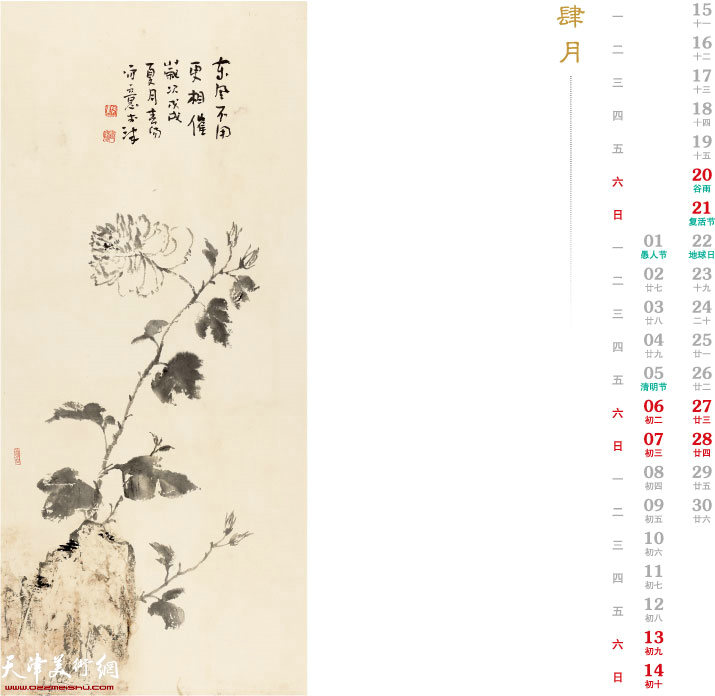 东风不用
更相催
岁次戊戌
夏月
肆月
一
二
三
四
五
六
日
一
二
三
四
五
六
日
一
二
三
四
五
六
日
01
愚人节
02
廿七
03
廿八
04
廿九
05
清明节
06
初二
07
初三
08
初四
09
初五
10
初六
11
初七
12
初八
13
初九
14
初十
15
十一
16
十二
17
十三
18
十四
19
十五
20
谷雨
21
复活节
22
地球日
23
十九
24
二十
25
廿一
26
廿二
27
廿三
28
廿四
29
廿五
30
廿六
天津美術網
www.022meishu.com